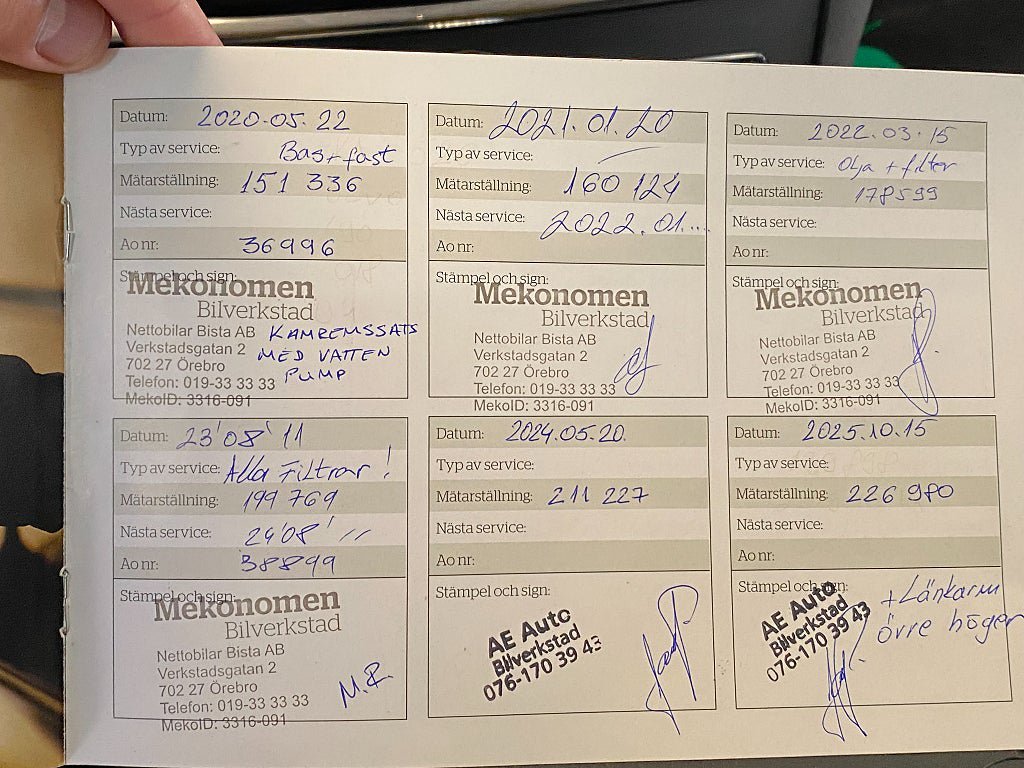 Datum: 2020-05. 22
Typ av service: Bas + fast
Mätarställning: 151 336
Nästa service:
Ao nr: 36996
Stämpel och sign:
Mekonomen
Bilverkstad
Nettobilar Bista AB
Verkstadsgatan 2
702 27 Örebro
Telefon: 019-33 33 33
MekoID: 3316-091
KAMREMSSATS
MED VATTEN
PUMP
Datum: 2021.01.20
Typ av service:
Mätarställning: 160 124
Nästa service: 2022.01....
Ao nr:
Stämpel och sign:
Mekonomen
Bilverkstad
Nettobilar Bista AB
Verkstadsgatan 2
702 27 Örebro
Telefon: 019-33 33 33
MekoID: 3316-091
Datum: 2022.03.15
Typ av service: Olja + filter
Mätarställning: 178599
Nästa service:
Ao nr:
Stämpel och sign:
Mekonomen
Bilverkstad
Nettobilar Bista AB
Verkstadsgatan 2
702 27 Örebro
Telefon: 019-33 33 33
MekoID: 3316-091
Datum: 23'08'11
Typ av service: Alla Filtrar !
Mätarställning: 199 769
Nästa service: 24'08' //
Ao nr: 38899
Stämpel och sign:
Mekonomen
Bilverkstad
Nettobilar Bista AB
Verkstadsgatan 2
702 27 Örebro
Telefon: 019-33 33 33
MekoID: 3316-091
M.R.
Datum: 2024.05.20.
Typ av service:
Mätarställning: 211 227
Nästa service:
Ao nr:
Stämpel och sign:
AE Auto
Bilverkstad
076-170 39 43
Datum: 2025.10.15
Typ av service:
Mätarställning: 226 980
Nästa service:
Ao nr:
Stämpel och sign:
AE Auto
Bilverkstad
076-170 39 43
+Länkarm
övre höger